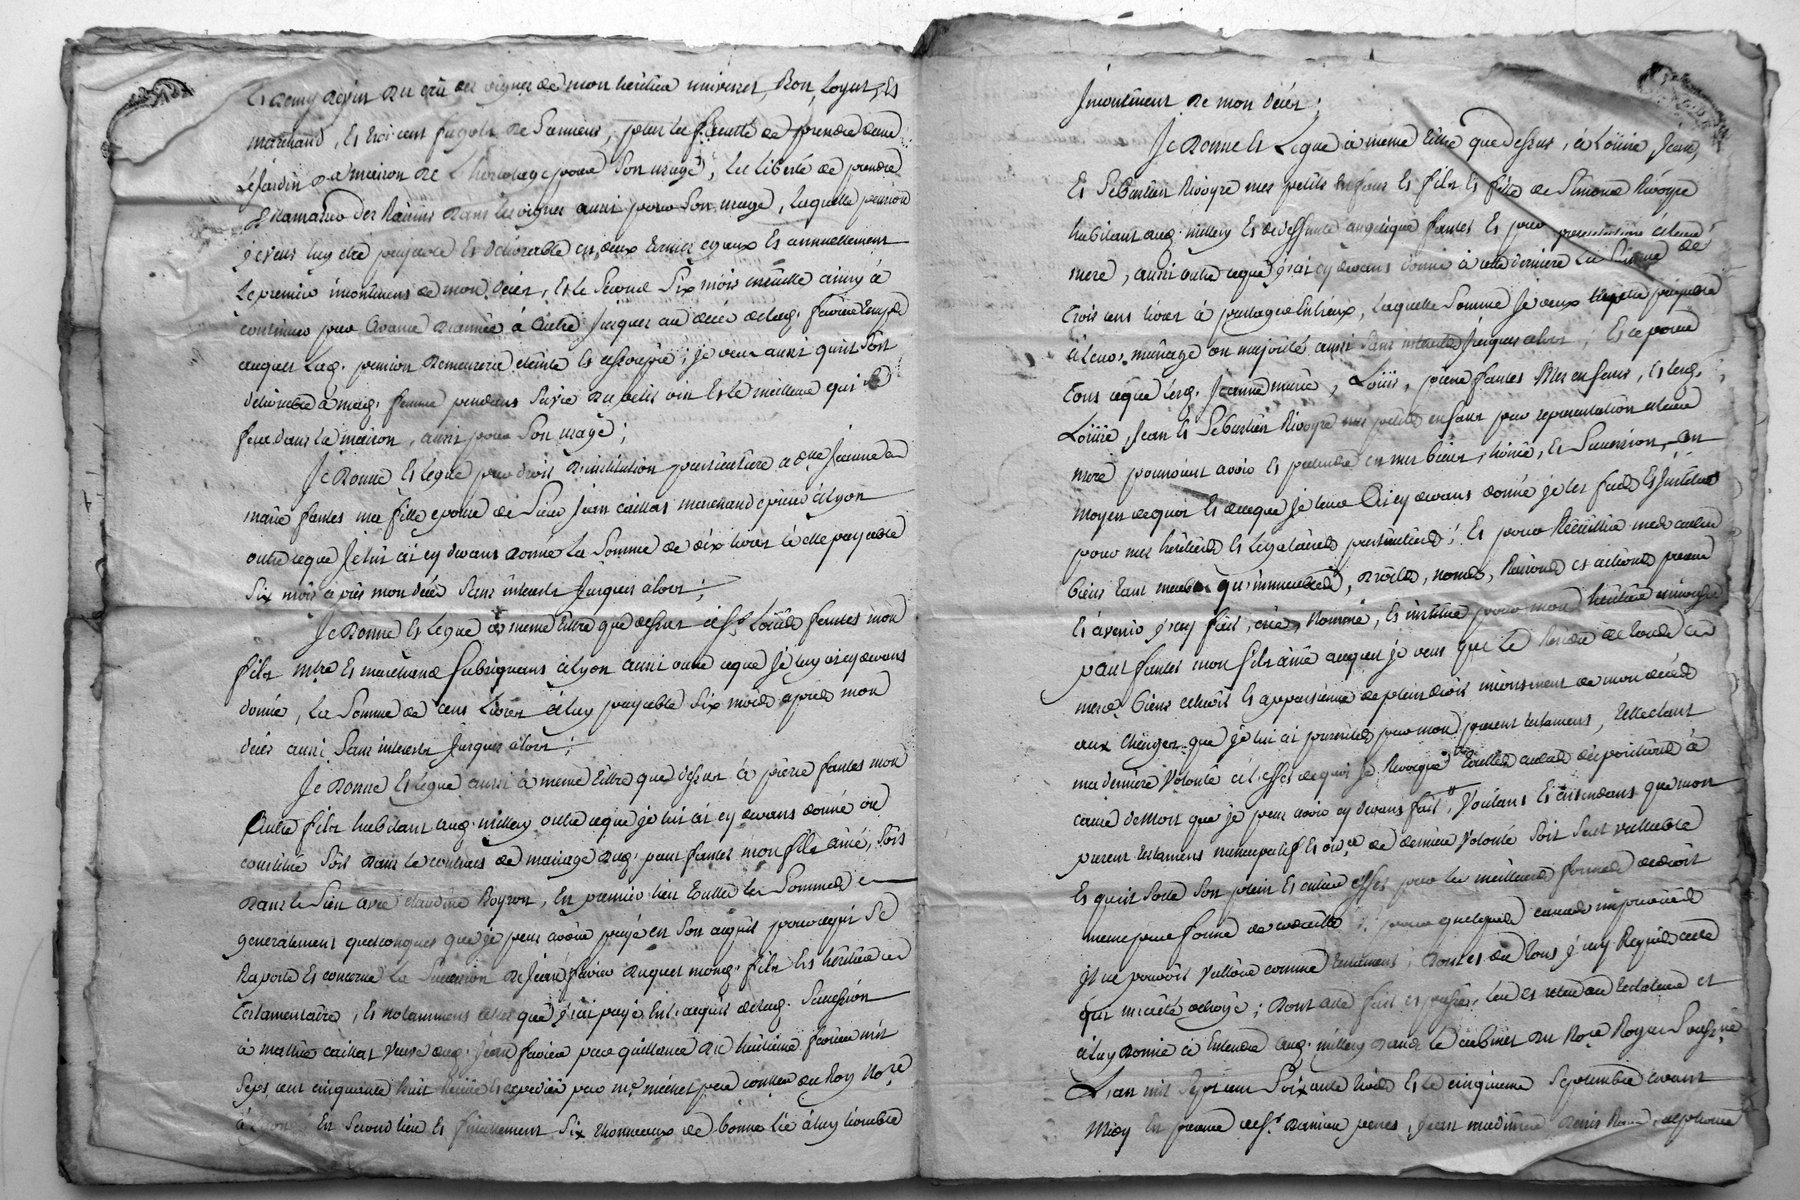 et demy de vin du crû des vignes de mon héritier universel, Bon, Loyal, Et
marchand, Et trois cent fagots de Sarment, plus la faculté de prendre dans
Le Jardin de la maison de L'heritage pour Son usage, La Liberté de prendre
Et ramasser des Raisins dans Les vignes aussi pour Son usage, Laquelle pension
je veux luy etre payable Et délivrable en deux termes egaux Et annuellement
Le premier incontinent de mon décès, Et Le Second Six mois ensuitte ainsy à
continuer pour chaque année à Autre Jusques au décès de lad. favier temps
auquel Lad. pension demeurera eteinte Et assoupie; je veux aussi qu'il Soit
délivrable à mad. femme pendant Sa vie du petit vin Et Le meilleur qui Se
fera dans La maison, aussi pour Son usage;
Je Donne Et Legue par droit d'institution particulière a d.lle Jeanne
marie fantes ma fille epouse de Sieur Jean caillat marchand epicier à Lyon
outre ce que Je lui ai cy devant donné La Somme de dix livres à elle payable
Six mois après mon décès Sans interets Jusques alors;
Je Donne Et Legue à meme titre que dessus à S.r Loüis fantes mon
fils mtre Et marchand fabriquant à Lyon aussi outre ce que Je luy ai cy devant
donné, La Somme de cent Livres à luy payable Six mois après mon
décès aussi Sans interets Jusques alors;
Je Donne Et Legue aussi à meme titre que dessus à pierre fantes mon
Autre fils habitant aud. millery outre ce que je lui ai cy devant donné ou
constitué Soit dans Le contract de mariage dud. paul fantes mon fils ainé, Soit
dans Le Sien avec claudine Boyron, En premier lieu toutes les Sommes
generalement quelconques que je peux avoir payé en Son acquit pour ce qui Se
Raporte Et concerne La Succession de Jean favier duquel mond. fils Est héritier
Testamentaire, Et notamment celles que j'ai payé En L'acquit de lad. Succession
à caillat Veuve dud. Jean favier par quittance du huitieme fevrier mil
Sept cent cinquante huit
à Lyon; En Second lieu Et finalement Six Thonneaux de bonne Lie à luy livrable
Incontinent de mon décès;
Je Donne Et Legue à meme titre que dessus, à Loüise, Jean,
Et Sébastien Rivoyre mes petits Enfans Et fils Et fille de Simond Rivoyre
habitant aud. millery Et de deffunte angelique fantes Et par representation de leur
mere, aussi outre ce que j'ai cy devant donné à cette derniere La Somme de
Trois cens livres à partager Entr'eux, Laquelle Somme je veux payable
à Leur ménage ou majorité aussi Sans interets Jusques alors, Et ce pour
Tous ce que Lesd. Jeanne marie, Loüis, pierre fantes Mes enfans, Et lesd.
Loüise, Jean Et Sébastien Rivoyre mes petits enfans par representation de leur
mere pourroient avoir Et pretendre en mes biens, hoirie, Et Succession, Au
moyen de quoi Et de ce que je leur Ai cy devant donné je les fais Et Institue
pour mes héritiers Et Legataires particuliers; Et pour Recüeillir mes autres
biens tant meubles qu'immeubles, droits, noms, Raisons et actions presens
Et à venir j'ai fait, créé, Nommé, Et institué pour mon héritier universel
paul fantes mon fils ainé auquel je veux que Le Reste de tous
mesd. biens echoit Et appartienne de plein droit incontinent de mon décès
aux charges que je lui ai prescrites par mon present testament, Telle etant
ma derniere Volonté à L'effet de quoi je Révoque toutes autres dispositions à
cause de Mort que je peux avoir cy devant fait, Voulant Et entendant que mon
present testament nuncupatif Et ord.ce de derniere Volonté Soit Seul valable
Et qu'il Sorte Son plein Et entier effet par les meilleures formes de droit
meme par forme de codicille Si pour quelques causes impreveües
il ne pouvoit Valloir comme testament; Dont Et du tous j'ay Requis acte
qui m'a été octroyé; Dont acte fait et passé, leu et releu au testateur et
à luy donné à Entendre aud. millery dans Le cabinet du No.re Royal Soussigné
L'an mil Sept cent Soixante trois Et Le cinquieme Septembre avant
Midy En presence de S.r Damien peres, Jean